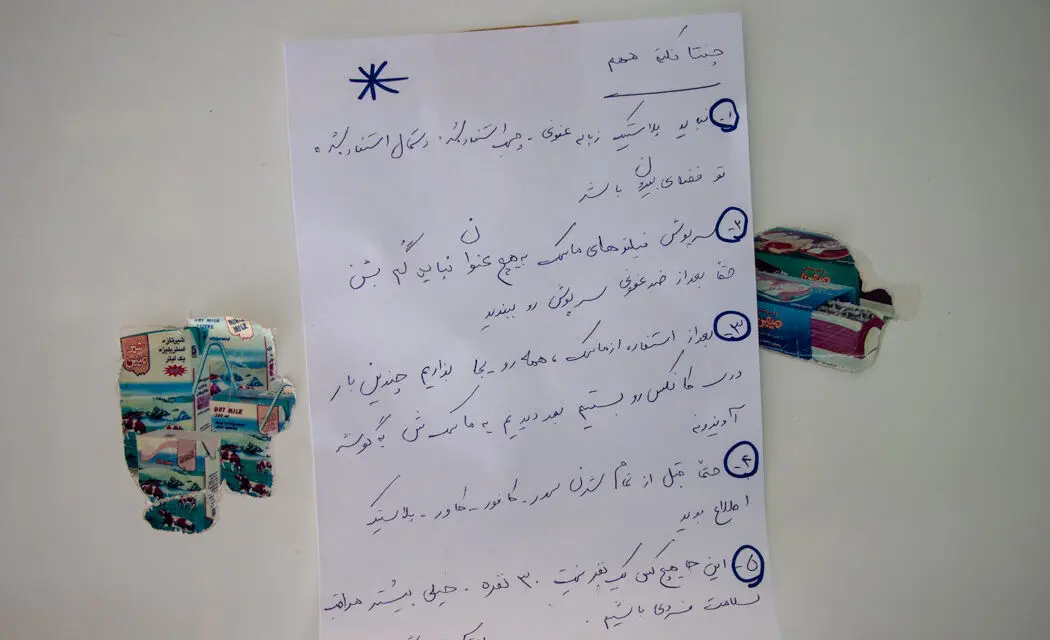 چنتا نکته مهم
۱- نباید پلاستیک زباله عفونی - چسب استفاده شده، دستمال استفاده شده
تو فضای بیرون باشد
۲- سرپوش فیلترهای ماسک به هیچ عنوان نباید گم بشن
حتماً بعد از ضدعفونی سرپوش رو ببندید
۳- بعد از استفاده از ماسک، همه رو یجا بزاریم چندین بار
درب کانکس رو بستیم بعد دیدیم یه ماسک ش یه گوشه
آویزونه
۴- حتماً قبل از تمام شدن سدر - کافور - کاور - پلاستیک
اطلاع بدید
۵- این جا هیچ کس یک نفر نیست ۳۰ نفره - خیلی بیشتر مراقب
سلامت فردی باشیم.
شیر تازه
استریلیزه
یک لیتر
میهن
DAY MILK